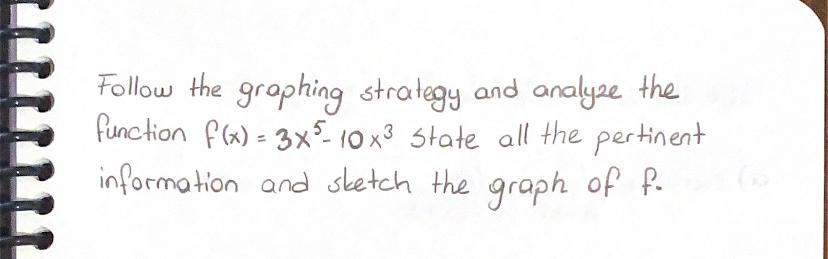 Follow the graphing strategy and analyze the
function f(x) = 3x⁵- 10x³ State all the pertinent
information and sketch the graph of f.